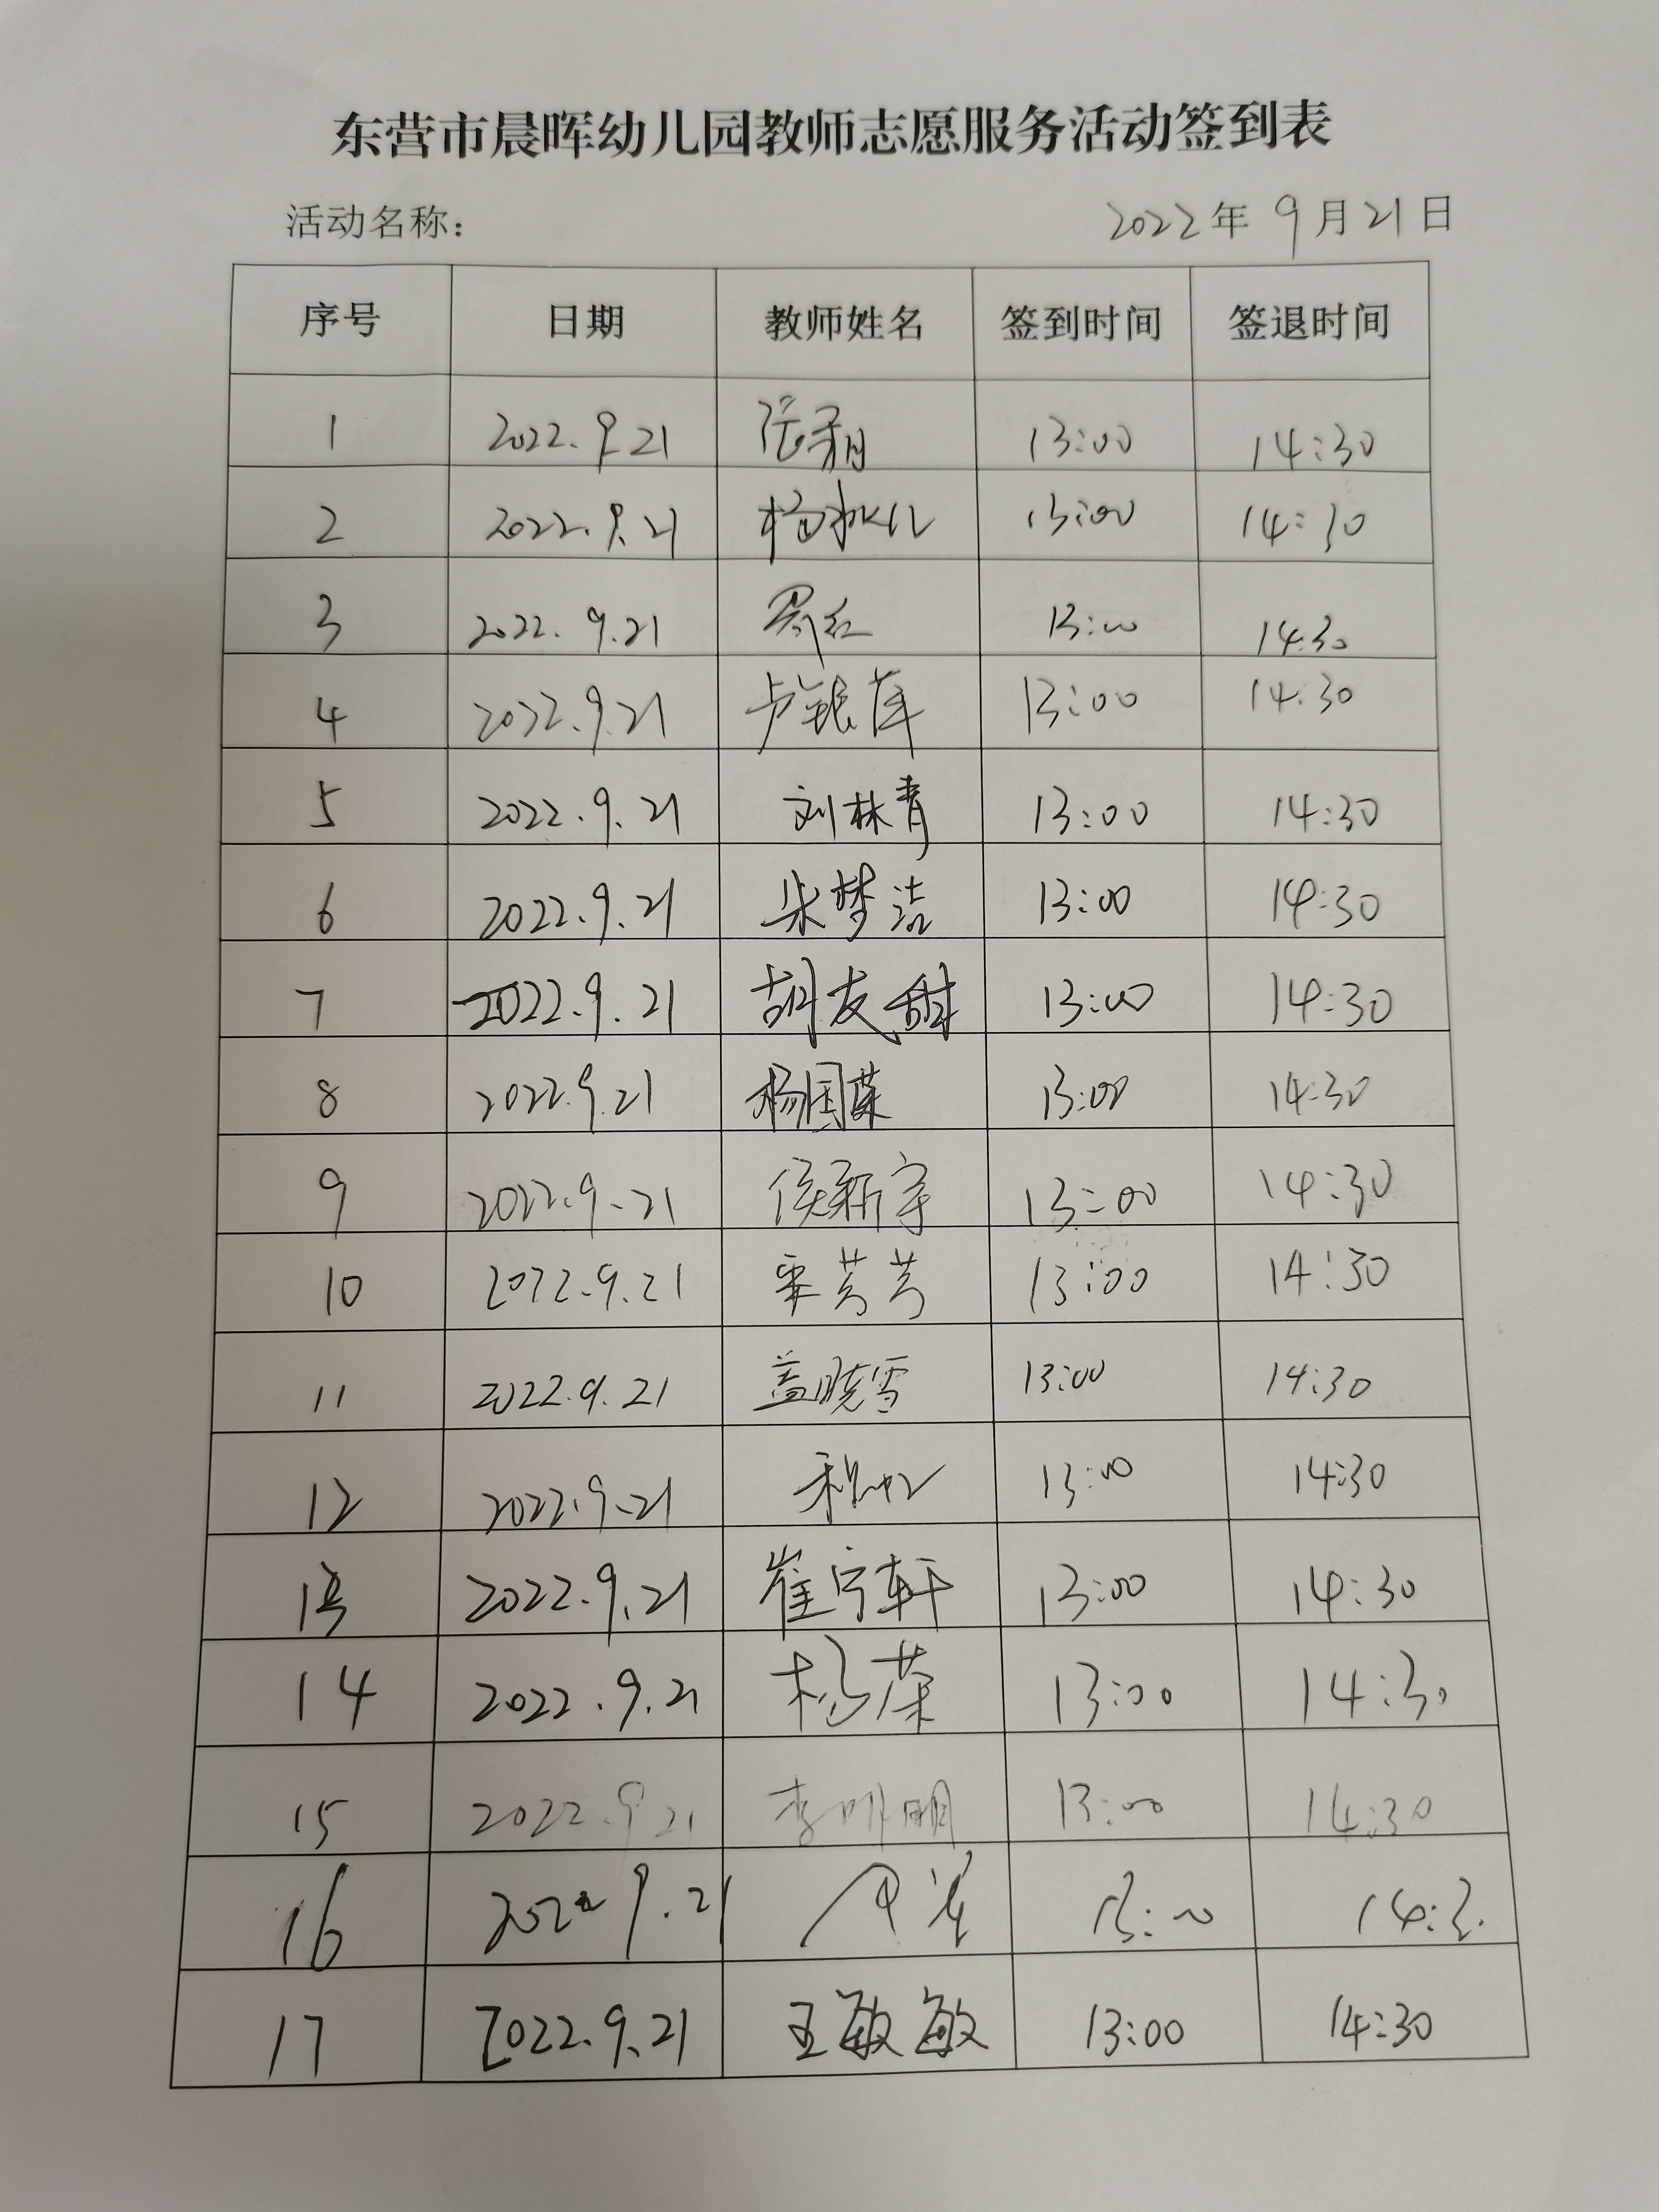 东营市晨晖幼儿园教师志愿服务活动签到表
活动名称： 2022年 9月21日
序号 日期 教师姓名 签到时间 签退时间
1 2022.9.21 13:00 14:30
2 2022.9.21 13:00 14:30
3 2022.9.21 13:00 14:30
4 2022.9.21 13:00 14:30
5 2022.9.21 刘林青 13:00 14:30
6 2022.9.21 朱梦洁 13:00 14:30
7 2022.9.21 胡友甜 13:00 14:30
8 2022.9.21 杨国荣 13:00 14:30
9 2022.9.21 侯新宇 13:00 14:30
10 2022.9.21 13:00 14:30
11 2022.9.21 盖晓雪 13:00 14:30
12 2022.9.21 13:00 14:30
13 2022.9.21 崔宁轩 13:00 14:30
14 2022.9.21 杨荣 13:00 14:30
15 2022.9.21 李明明 13:00 14:30
16 2022 9.21 13:00
17 2022.9.21 王敏敏 13:00 14:30